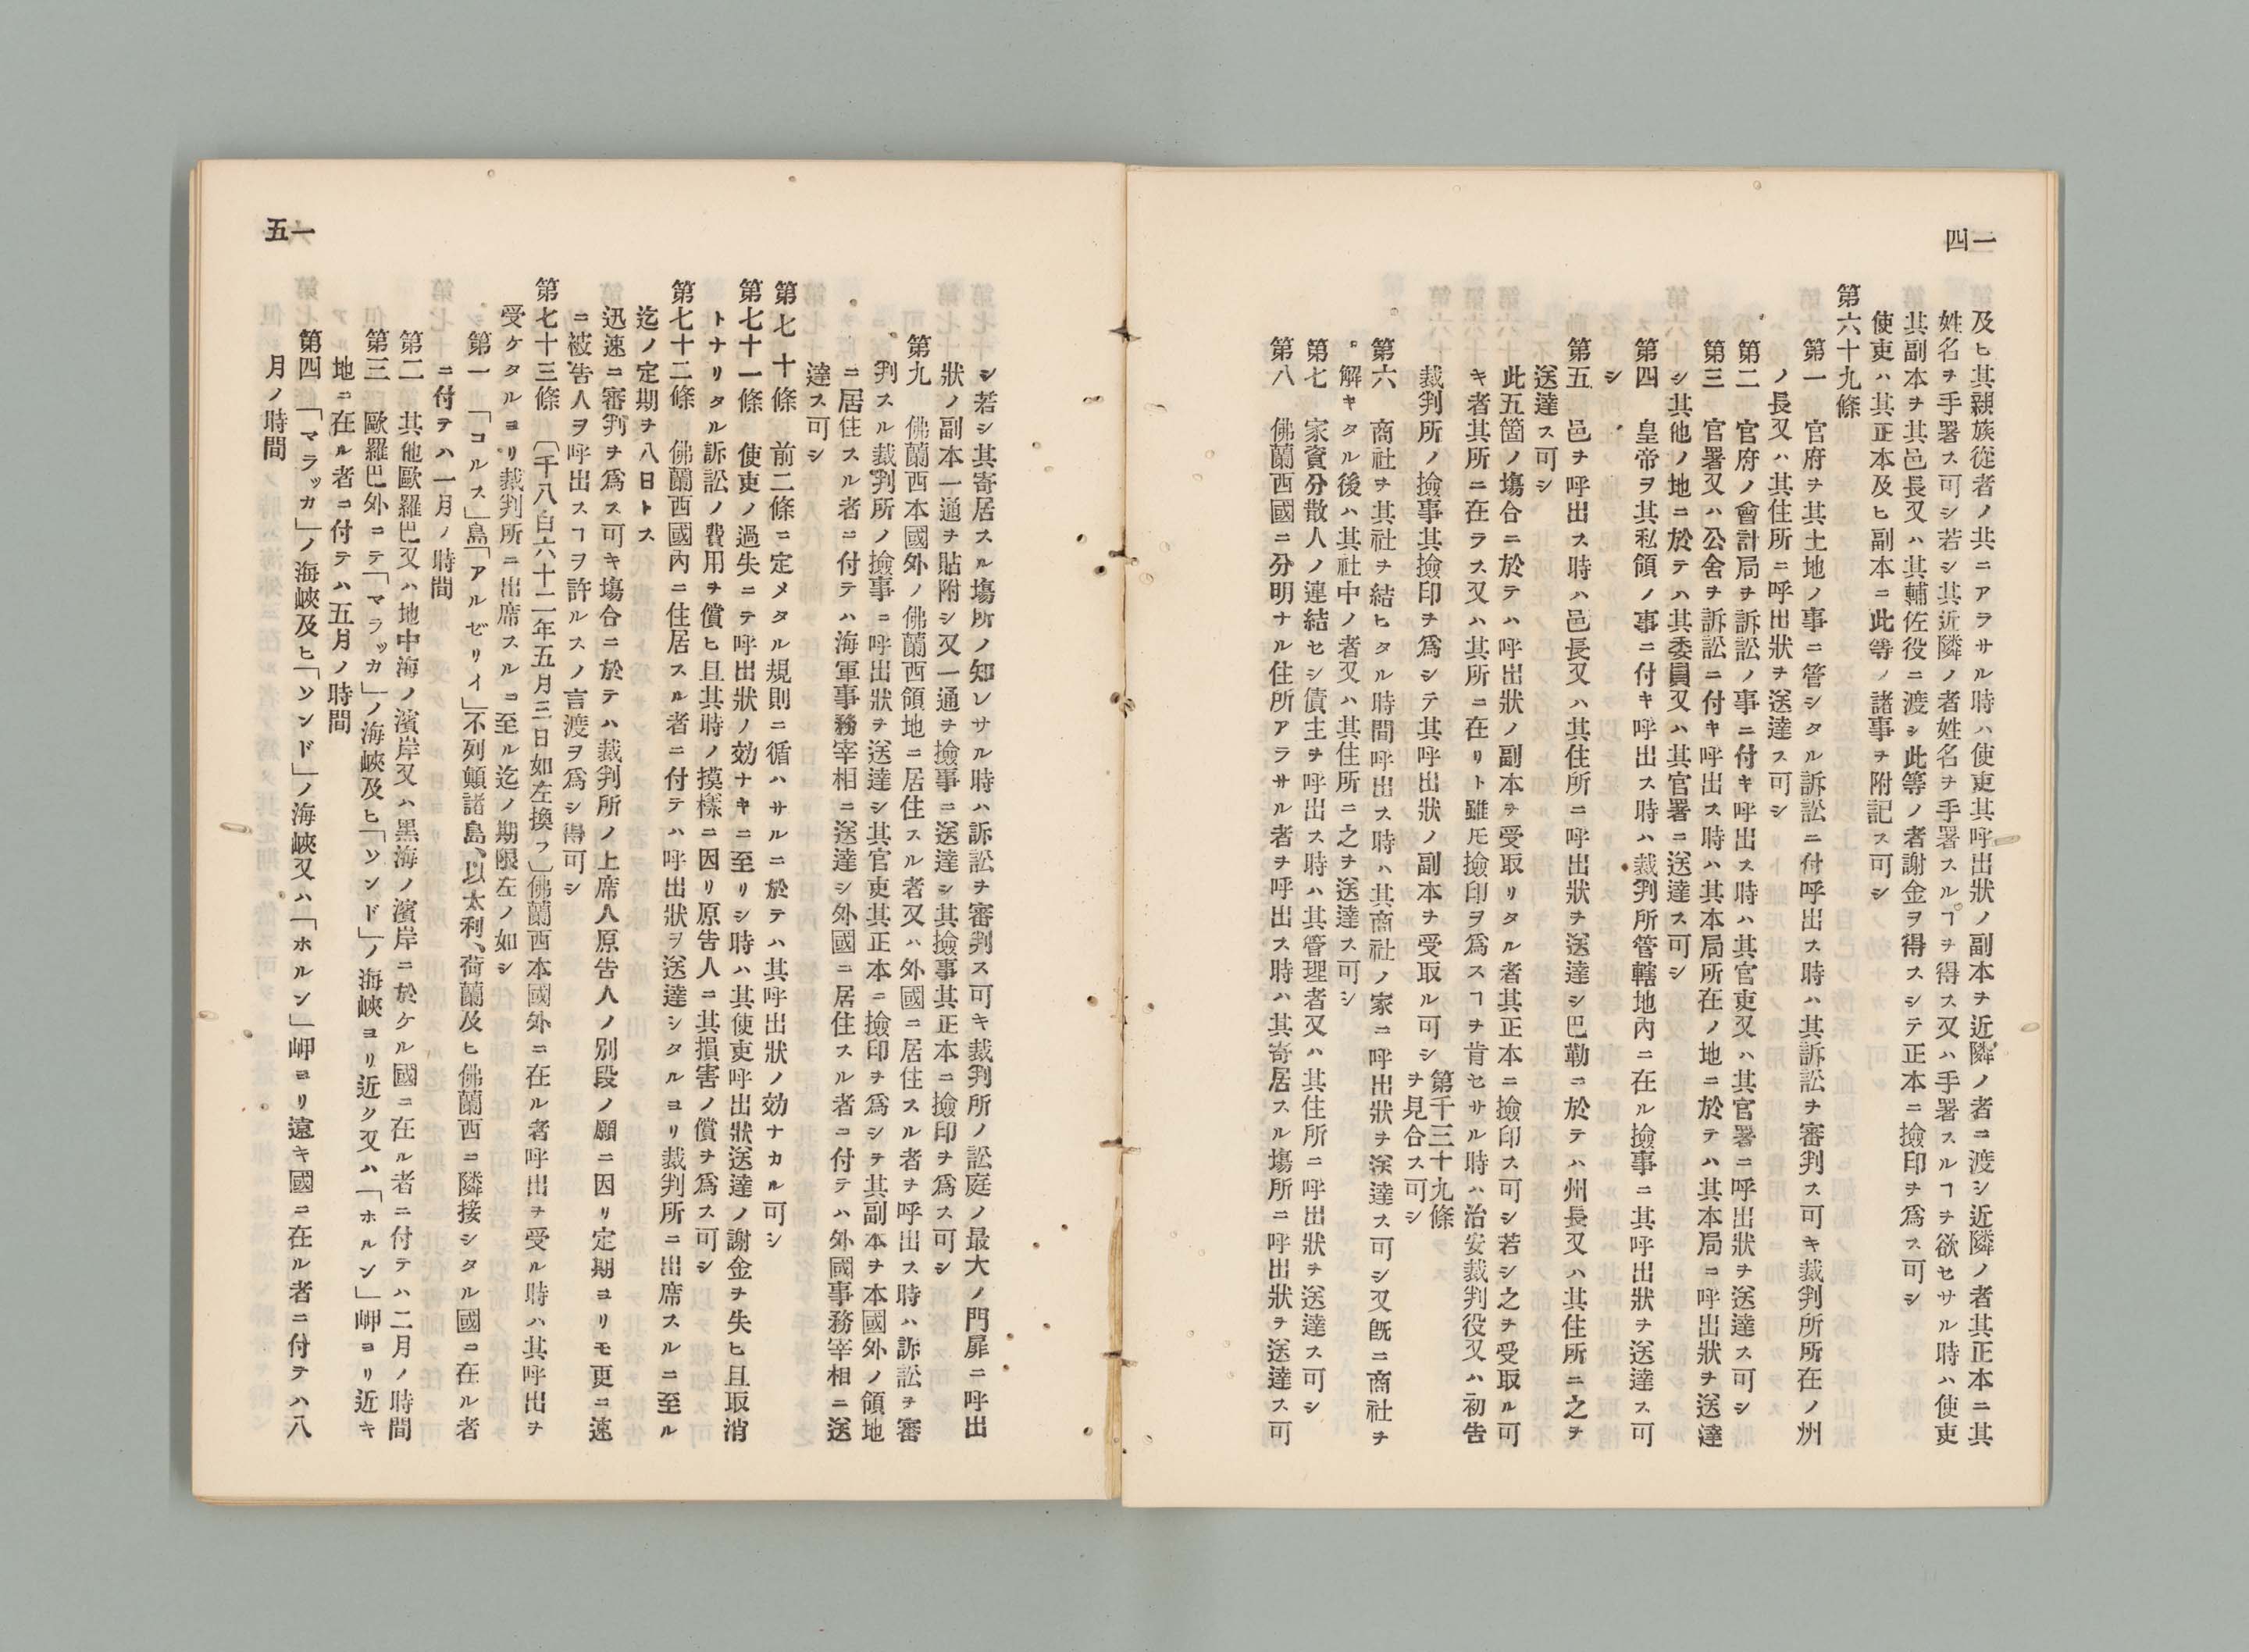 一四
及ヒ其親族從者ノ共ニアラサル時ハ使吏其呼出狀ノ副本ヲ近隣ノ者ニ渡シ近隣ノ者其正本ニ其
姓名ヲ手署ス可シ若シ其近隣ノ者姓名ヲ手署スルヿヲ得ス又ハ手署スルヿヲ欲セサル時ハ使吏
其副本ヲ其邑長又ハ其輔佐役ニ渡シ此等ノ者謝金ヲ得スシテ正本ニ撿印ヲ爲ス可シ
使吏ハ其正本及ヒ副本ニ此等ノ諸事ヲ附記ス可シ
第六十九條
第一　官府ヲ其土地ノ事ニ管シタル訴訟ニ付呼出ス時ハ其訴訟ヲ審判ス可キ裁判所所在ノ州
ノ長又ハ其住所ニ呼出狀ヲ送達ス可シ
第二　官府ノ會計局ヲ訴訟ノ事ニ付キ呼出ス時ハ其官吏又ハ其官署ニ呼出狀ヲ送達ス可シ
第三　官署又ハ公舎ヲ訴訟ニ付キ呼出ス時ハ其本局所在ノ地ニ於テハ其本局ニ呼出狀ヲ送達
シ其他ノ地ニ於テハ其委員又ハ其官署ニ送達ス可シ
第四　皇帝ヲ其私領ノ事ニ付キ呼出ス時ハ裁判所管轄地內ニ在ル撿事ニ其呼出狀ヲ送達ス可
シ
第五　邑ヲ呼出ス時ハ邑長又ハ其住所ニ呼出狀ヲ送達シ巴勒ニ於テハ州長又ハ其住所ニ之ヲ
送達ス可シ
此五箇ノ塲合ニ於テハ呼出狀ノ副本ヲ受取リタル者其正本ニ撿印ス可シ若シ之ヲ受取ル可
キ者其所ニ在ラス又ハ其所ニ在リト雖𪜈撿印ヲ爲スヿヲ肯セサル時ハ治安裁判役又ハ初告
裁判所ノ撿事其撿印ヲ爲シテ其呼出狀ノ副本ヲ受取ル可シ第千三十九條ヲ見合ス可シ
第六　商社ヲ其社ヲ結ヒタル時間呼出ス時ハ其商社ノ家ニ呼出狀ヲ送達ス可シ又旣ニ商社ヲ
解キタル後ハ其社中ノ者又ハ其住所ニ之ヲ送達ス可シ
第七　家資分散人ノ連結セシ債主ヲ呼出ス時ハ其管理者又ハ其住所ニ呼出狀ヲ送達ス可シ
第八　佛蘭西國ニ分明ナル住所アラサル者ヲ呼出ス時ハ其寄居スル塲所ニ呼出狀ヲ送達ス可
一五
シ若シ其寄居スル塲所ノ知レサル時ハ訴訟ヲ審判ス可キ裁判所ノ訟庭ノ最大ノ門扉ニ呼出
狀ノ副本一通ヲ貼附シ又一通ヲ撿事ニ送達シ其撿事其正本ニ撿印ヲ爲ス可シ
第九　佛蘭西本國外ノ佛蘭西領地ニ居住スル者又ハ外國ニ居住スル者ヲ呼出ス時ハ訴訟ヲ審
判スル裁判所ノ撿事ニ呼出狀ヲ送達シ其官吏其正本ニ撿印ヲ爲シテ其副本ヲ本國外ノ領地
ニ居住スル者ニ付テハ海軍事務宰相ニ送達シ外國ニ居住スル者ニ付テハ外國事務宰相ニ送
達ス可シ
第七十條　前二條ニ定メタル規則ニ循ハサルニ於テハ其呼出狀ノ効ナカル可シ
第七十一條　使吏ノ過失ニテ呼出狀ノ効ナキニ至リシ時ハ其使吏呼出狀送達ノ謝金ヲ失ヒ且取消
トナリタル訴訟ノ費用ヲ償ヒ且其時ノ摸樣ニ因リ原告人ニ其損害ノ償ヲ爲ス可シ
第七十二條　佛蘭西國內ニ住居スル者ニ付テハ呼出狀ヲ送達シタルヨリ裁判所ニ出席スルニ至ル
迄ノ定期ヲ八日トス
迅速ニ審判ヲ爲ス可キ塲合ニ於テハ裁判所ノ上席人原告人ノ別段ノ願ニ因リ定期ヨリモ更ニ速
ニ被告人ヲ呼出スヿヲ許ルスノ言渡ヲ爲シ得可シ
第七十三條　〔千八百六十二年五月三日如左換フ〕佛蘭西本國外ニ在ル者呼出ヲ受ル時ハ其呼出ヲ
受ケタルヨリ裁判所ニ出席スルニ至ル迄ノ期限左ノ如シ
第一　「コルス」島「アルゼリイ」不列顛諸島、以太利、荷蘭及ヒ佛蘭西ニ隣接シタル國ニ在ル者
ニ付テハ一月ノ時間
第二　其他歐羅巴又ハ地中海ノ濱岸又ハ黑海ノ濱岸ニ於ケル國ニ在ル者ニ付テハ二月ノ時間
第三　歐羅巴外ニテ「マラッカ」ノ海峽及ヒ「ソンド」ノ海峽ヨリ近ク又ハ「ホルン」岬ヨリ近キ
地ニ在ル者ニ付テハ五月ノ時間
第四　「マラッカ」ノ海峽及ヒ「ソンド」ノ海峽又ハ「ホルン」岬ヨリ遠キ國ニ在ル者ニ付テハ八
月ノ時間